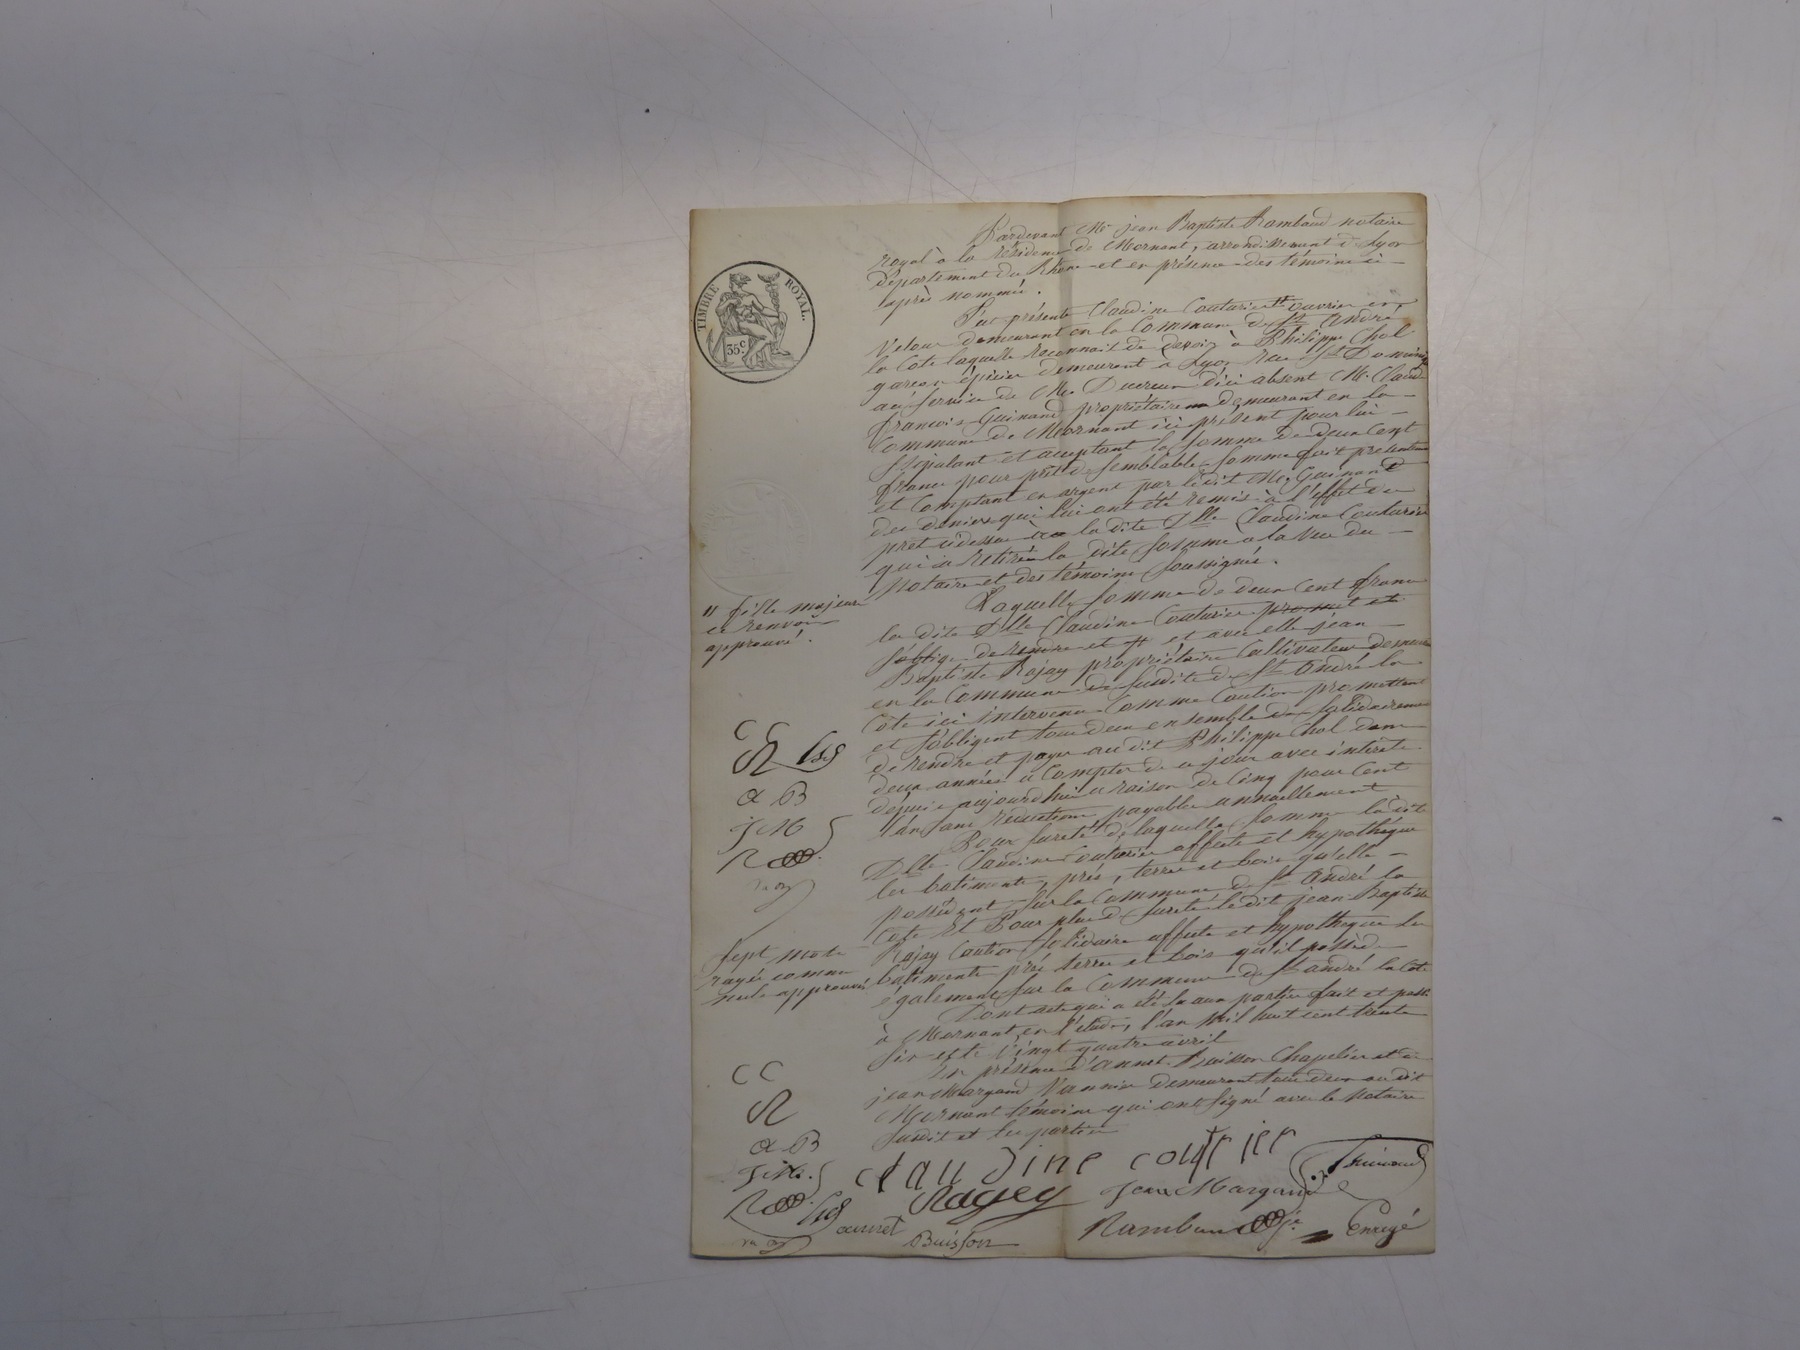 TIMBRE ROYAL.
35c
Pardevant Me jean Baptiste Rambaud notaire
royal à la résidence de Mornant, arrondissement de Lyon
Département du Rhône et en présence des témoins ci-
après nommés.
Fut présente Claudine Couturier ouvrier en
Velour demeurant en la Commune de St André
la Cote laquelle reconnait de devoir à Philippe Chol
garcon épicier demeurant à Lyon rue St Dominique
au service de Mr Ducreux d'ici absent Mr Claude
francois Guinand propriétaire demeurant en la
Commune de Mornant ici présent pour lui
stipulant et acceptant la somme de deux Cent
francs pour prêt de semblable somme fait présentement
et Comptant en argent par le dit Mr Guinand
des deniers qui lui ont été remis à l'effet du
prêt cidessus à la dite Dlle Claudine Couturier
qui a retiré la dite somme a la vue du
notaire et des témoins soussignés.
Laquelle somme de deux Cent francs
la dite Dlle Claudine Couturier promet et
s'oblige de rendre et # et avec elle jean
Baptiste Rajay propriétaire Cultivateur demeurant
en la Commune de susdite de St André la
Cote ici intervenu Comme Caution promettent
et s'obligent tous deux ensemble solidairement
de rendre et payer au dit Philippe Chol dans
deux années a Compter de ce jour avec intérêts
depuis aujourdhui a raison de Cinq pour Cent
l'an sans réduction payables annuellement
Pour sureté de laquelle somme la dite
Dlle Claudine Couturier affecte et hypothèque
les batiments, prés, terres et bois qu'elle
possèdent sur la Commune de St André la
Cote Et Pour plus de sureté le dit jean Baptiste
Rajay Caution solidaire affecte et hypothèque les
batiments prés terres et bois qu'il possède
également sur la Commune de St andré la Cote
Dont acte qui a été lu aux parties fait et passé
à Mornant en l'étude, l'an mil huit cent trente
six et le vingt quatre avril
En présence d'annet Buisson Chapelier et de
jean Margand Vannier demeurant tous deux au dit
Mornant témoins qui ont signé avec le Notaire
susdit et les parties
" fille majeure
ce renvoi
approuvé.
C C
R
a B
J M
R
Sept mots
rayés comme
nuls approuvés
C C
R
a B
J M.
R
claudine coutirier
Guinand
Ragey
Jean Margand
annet
Buisson
Rambaud
Enregé